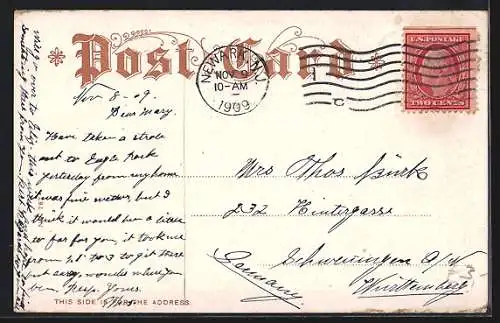 Post Card
NEWARK, N.J.
NOV 9
10-AM
1909
U.S. POSTAGE
TWO CENTS
Nov 8 - 09.
Dear Mary.
Have taken a strole
out to Eagle Rock
yesterday from my home
it was fine wether, but I
think it would been a little
to far for you, it took me
from 1 to 3 to get there
but every wonder where you
been. Resp. Yours.
Mrs Thos Bürk
232 Hintergasse
Schwenningen a/N
Württemberg
Germany
THIS SIDE IS FOR THE ADDRESS